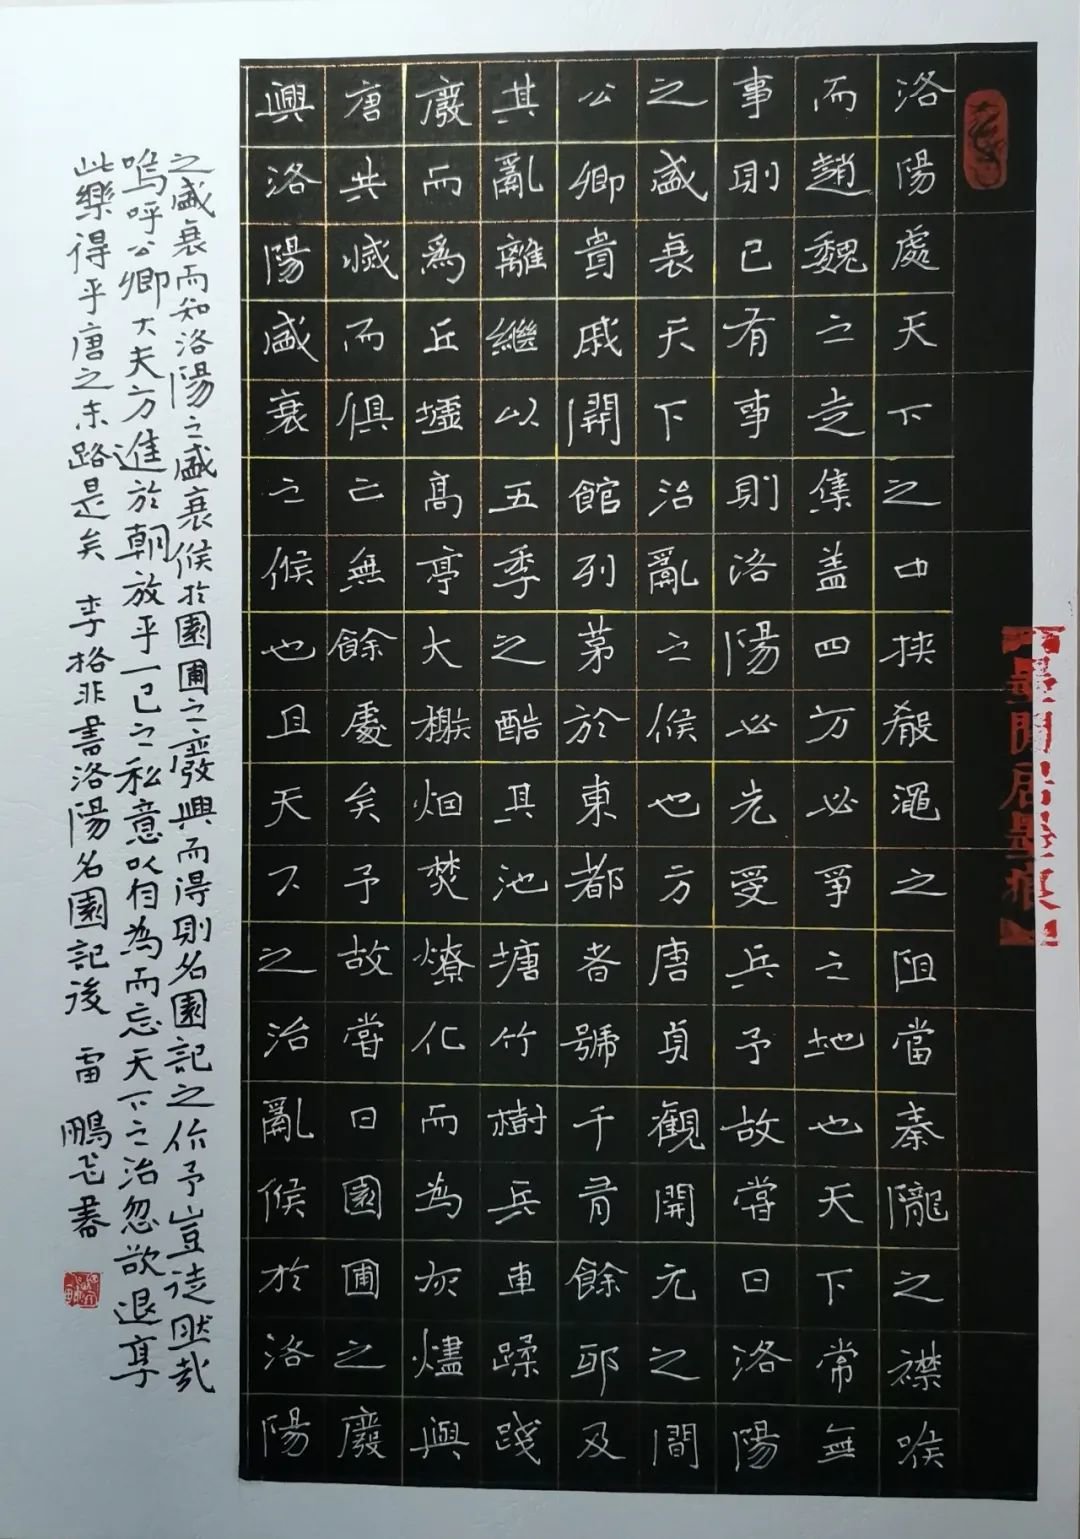 洛陽處天下之中挾殽澠之阻當秦隴之襟喉
而趙魏之走集蓋四方必爭之地也天下常無
事則已有事則洛陽必先受兵予故嘗曰洛陽
之盛衰天下治亂之候也方唐貞觀開元之間
公卿貴戚開館列茅於東都者號千有餘邸及
其亂離繼以五季之酷其池塘竹樹兵車蹂踐
廢而為丘墟高亭大榭烟焚燎化而為灰燼與
唐共滅而俱亡無餘處矣予故嘗曰園圃之廢
興洛陽盛衰之候也且天下之治亂候於洛陽
之盛衰而知洛陽之盛衰候於園圃之廢興而得則名園記之作予豈徒然哉
嗚呼公卿大夫方進於朝放乎一己之私意以自為而忘天下之治忽欲退享
此樂得乎唐之末路是矣 李格非書洛陽名園記後 雷鵬飛書
墨閒居墨痕